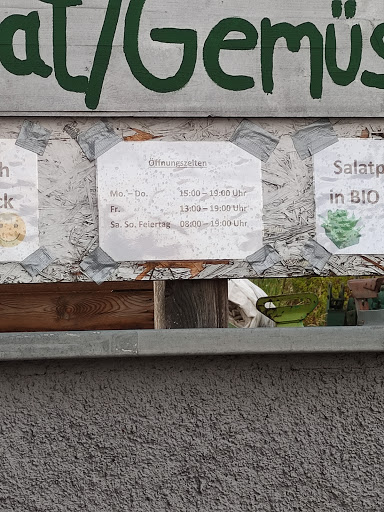 at/Gemüs
Öffnungszeiten
Mo. – Do. 15:00 – 19:00 Uhr
Fr. 13:00 – 19:00 Uhr
Sa. So. Feiertag 08:00 – 19:00 Uhr
h
ck
Salatp
in BIO